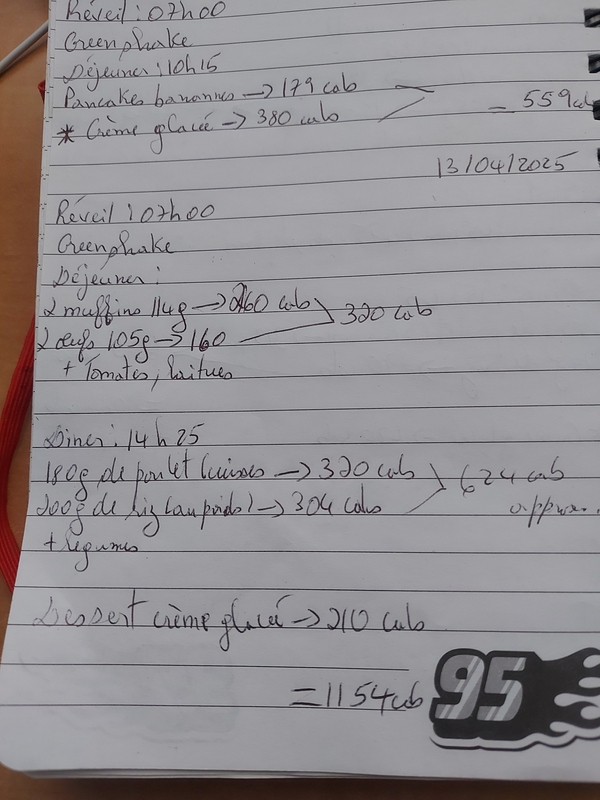 Réveil : 07h00
Greenshake
Déjeuner : 10h15
Pancakes bananes → 179 cals
* Crème glacée → 380 cals
= 559 cals
13/04/2025
Réveil : 07h00
Greenshake
Déjeuner :
2 muffins 114g → 260 cals
320 cals
2 œufs 105g → 160
+ Tomates, laitues
Diner : 14h25
180g de poulet cuisses → 320 cals
624 cals
200g de riz (au poids) → 304 cals
approx.
+ légumes
Dessert crème glacée → 210 cals
= 1154 cals
95